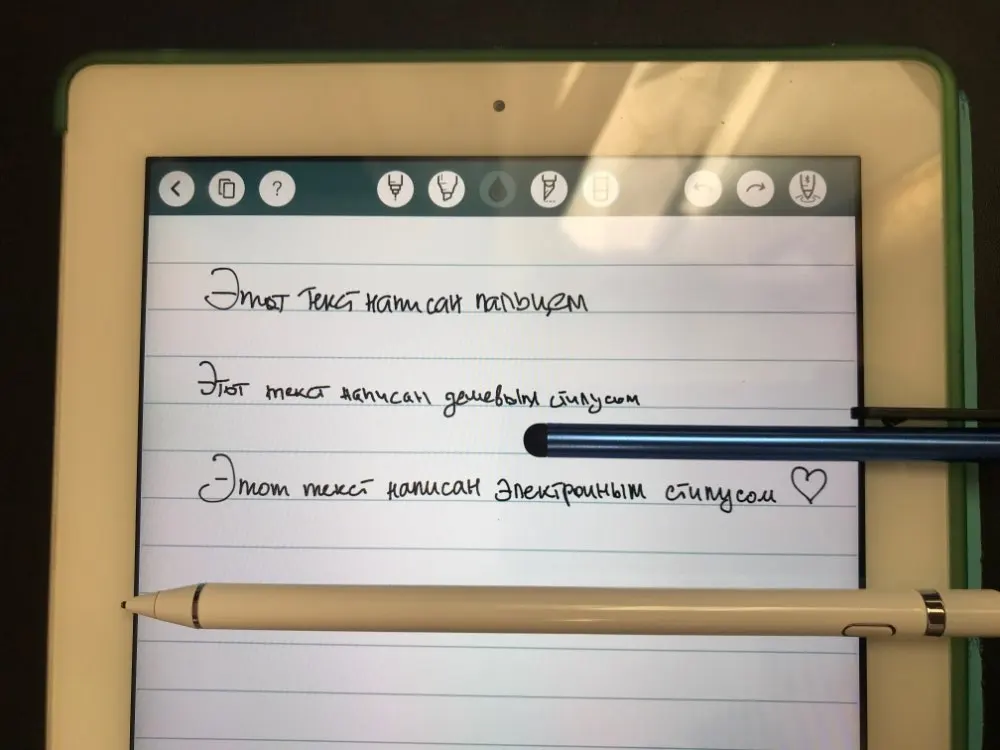 ?
Этот текст написан пальцем
Этот текст написан дешевым стилусом
Этот текст написан электронным стилусом ♡